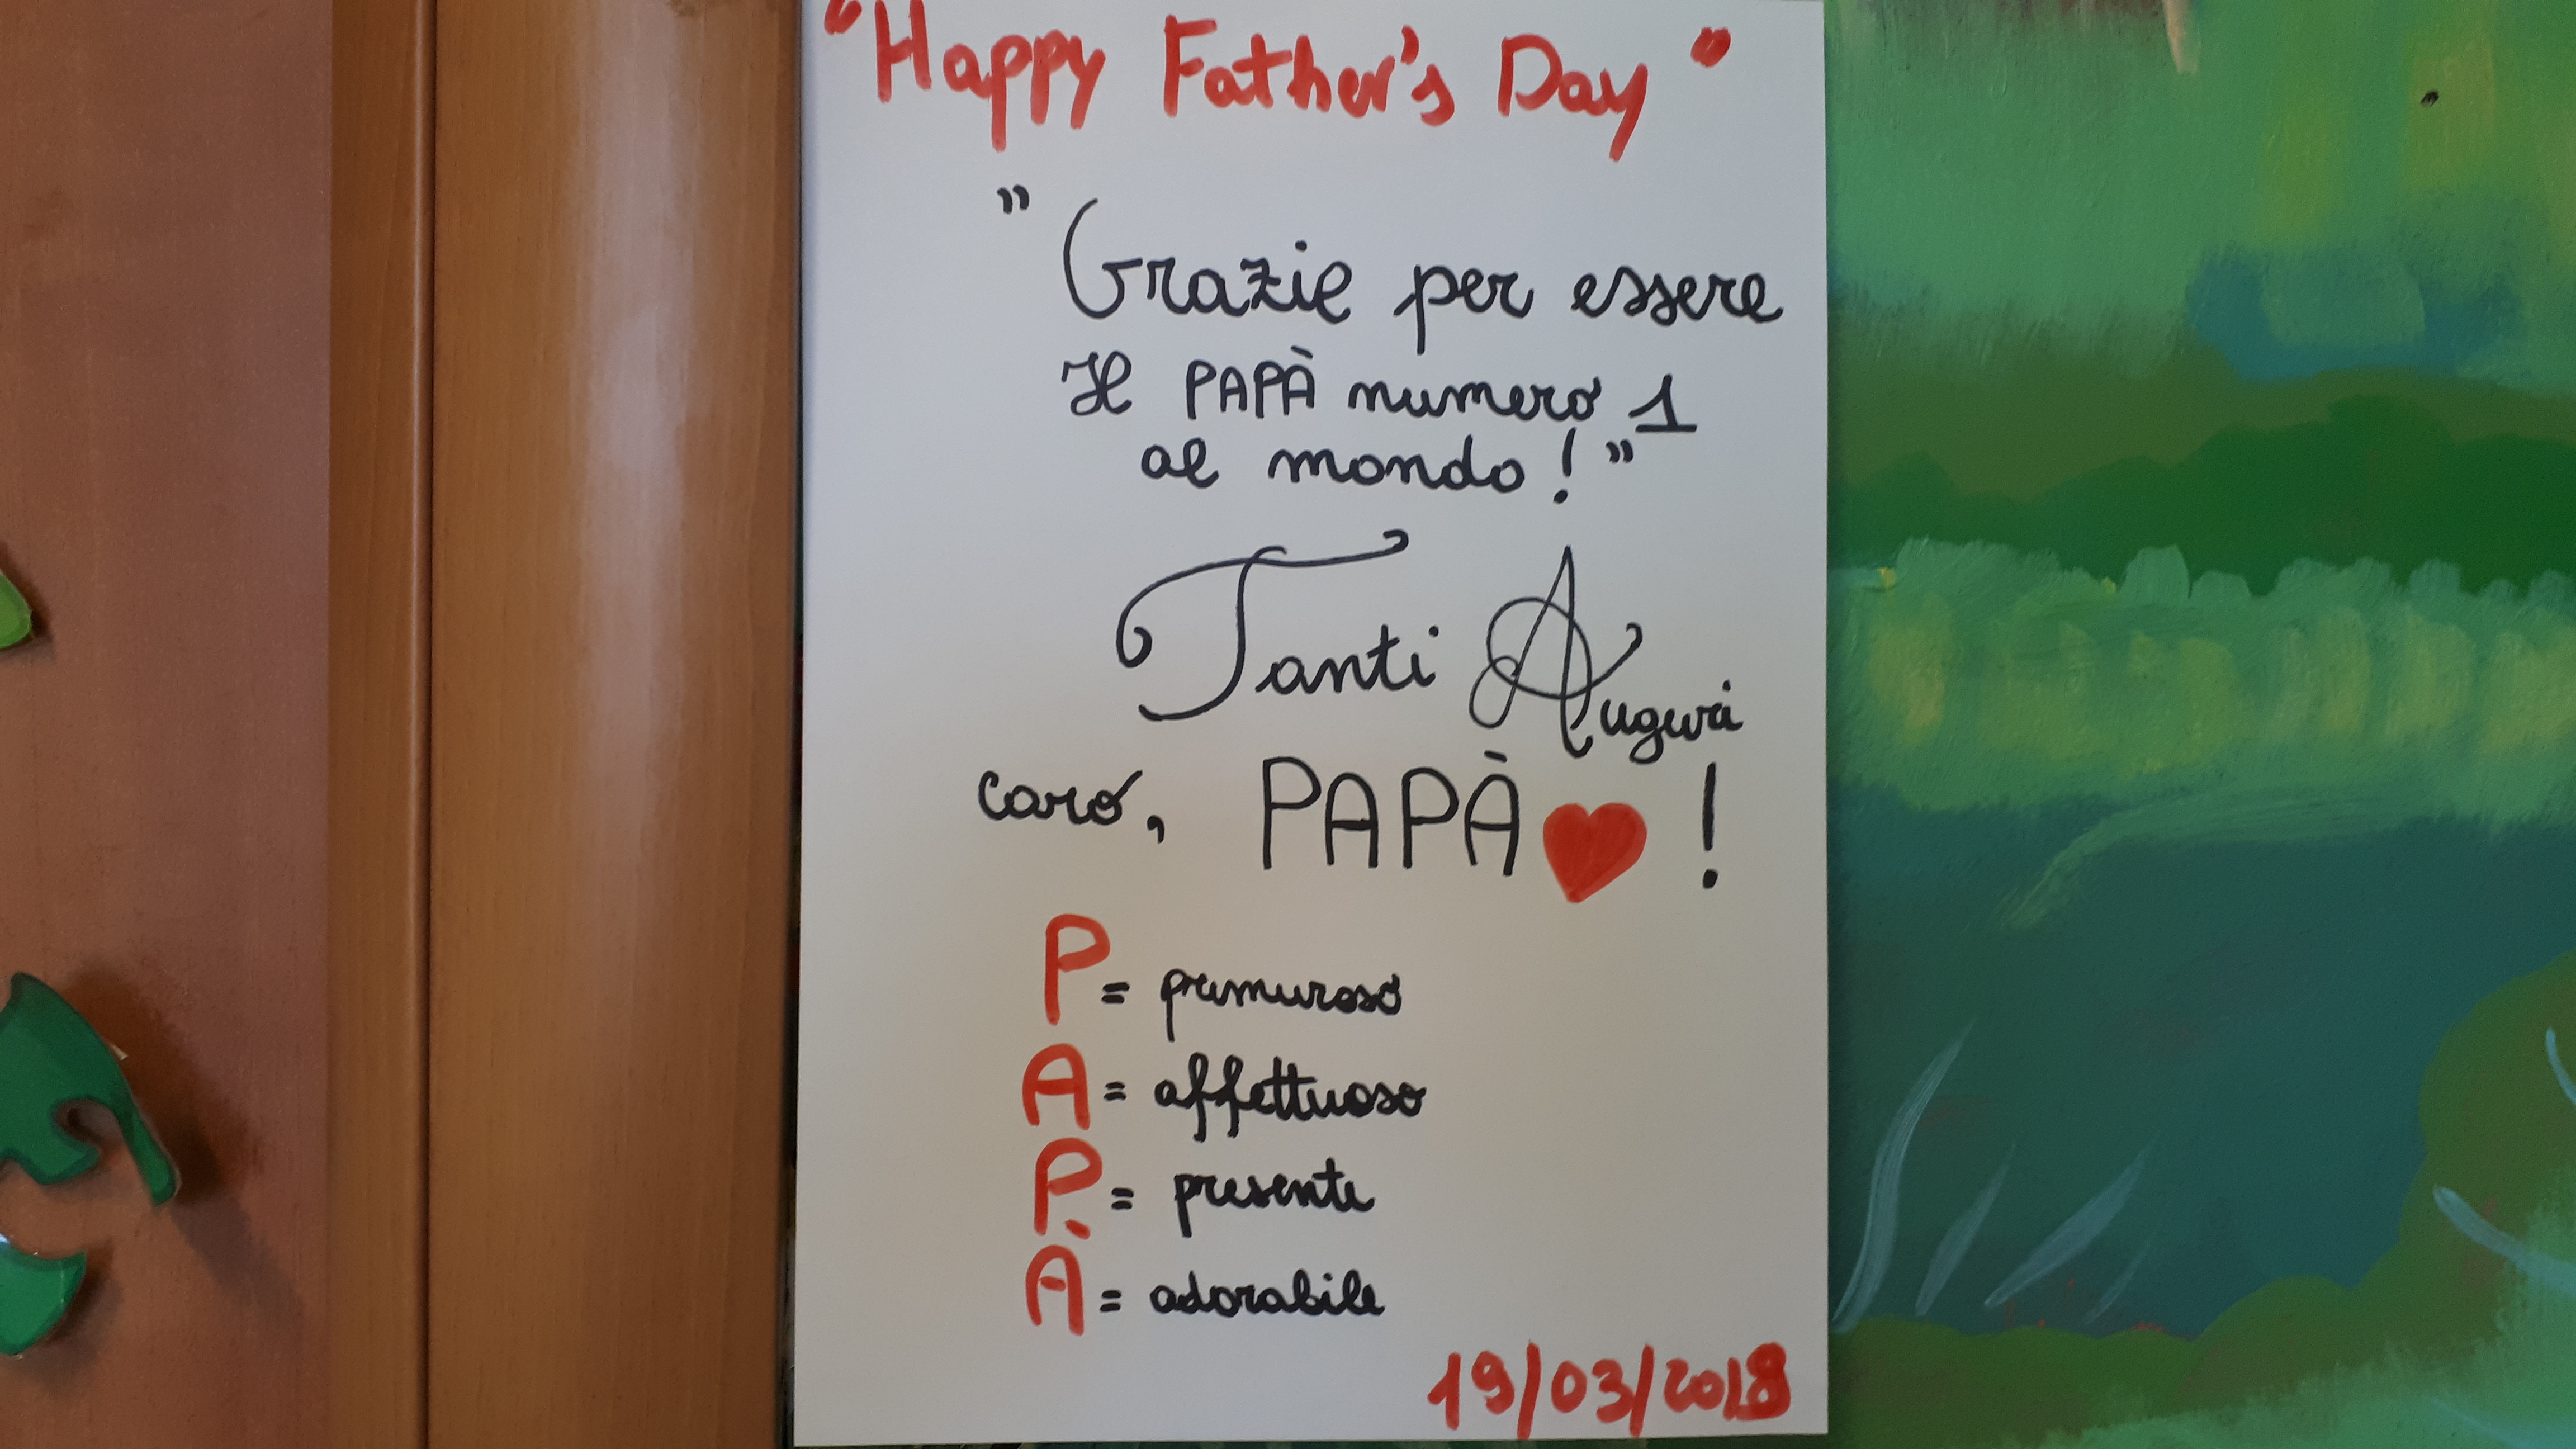 "Happy Father's Day"
"Grazie per essere
Il PAPÀ numero 1
al mondo!"
Tanti Auguri
caro, PAPÀ ♥ !
P = premuroso
A = affettuoso
P = presente
À = adorabile
19/03/2018